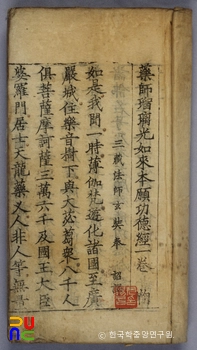 藥師瑠璃光如來本願功德經一卷
三藏法師玄奘奉 詔譯
如是我聞一時薄伽梵遊化諸國至廣
嚴城住樂音樹下與大苾芻衆八千人
俱菩薩摩訶薩三萬六千及國王大臣
婆羅門居士天龍藥叉人非人等無
© 한국학중앙연구원